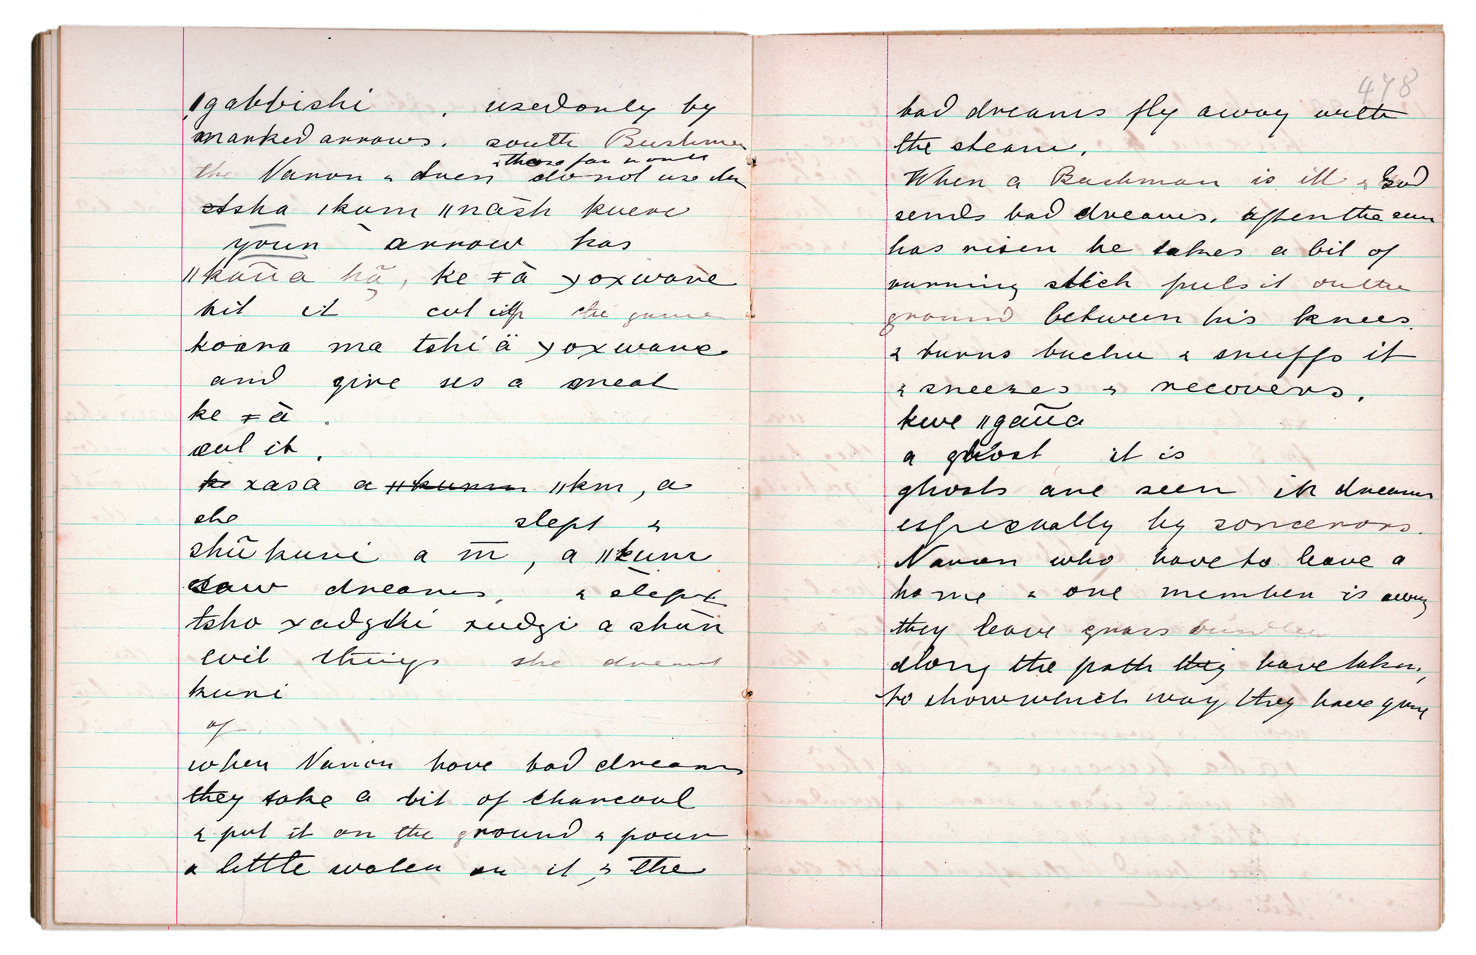 ǃgabbishi . used only by
marked arrows. south Bushmen
the Naron & Auen & those far north do not use them
tsha ǀkum ǁnāsh kuere
your arrow has
ǁkaũa hã, ke ǂā χoxware
hit it cut up the game
koara ma tshi ä χoxware
and give us a meat
ke ǂā .
cut it .
xasa a ǁkm, a
she slept &
shũ kuri a m̄, a ǁkum
saw dreams, & slept
tsho xadgiki xudgi a shũri
evil things she dreamt
kuri
of
when Naron have bad dreams
they take a bit of charcoal
& put it on the ground & pour
a little water on it, & the
478
bad dreams fly away with
the steam.
When a Bushman is ill & God
sends bad dreams, after the sun
has risen he takes a bit of
burning stick puts it on the
ground between his knees
& burns buchu & snuffs it
& sneezes & recovers.
kwe ǁgaũa
a ghost it is
ghosts are seen in dreams
especially by sorcerors.
Naron who have to leave a
home & one member is away
they leave grass bundles
along the path they have taken,
to show which way they have gone